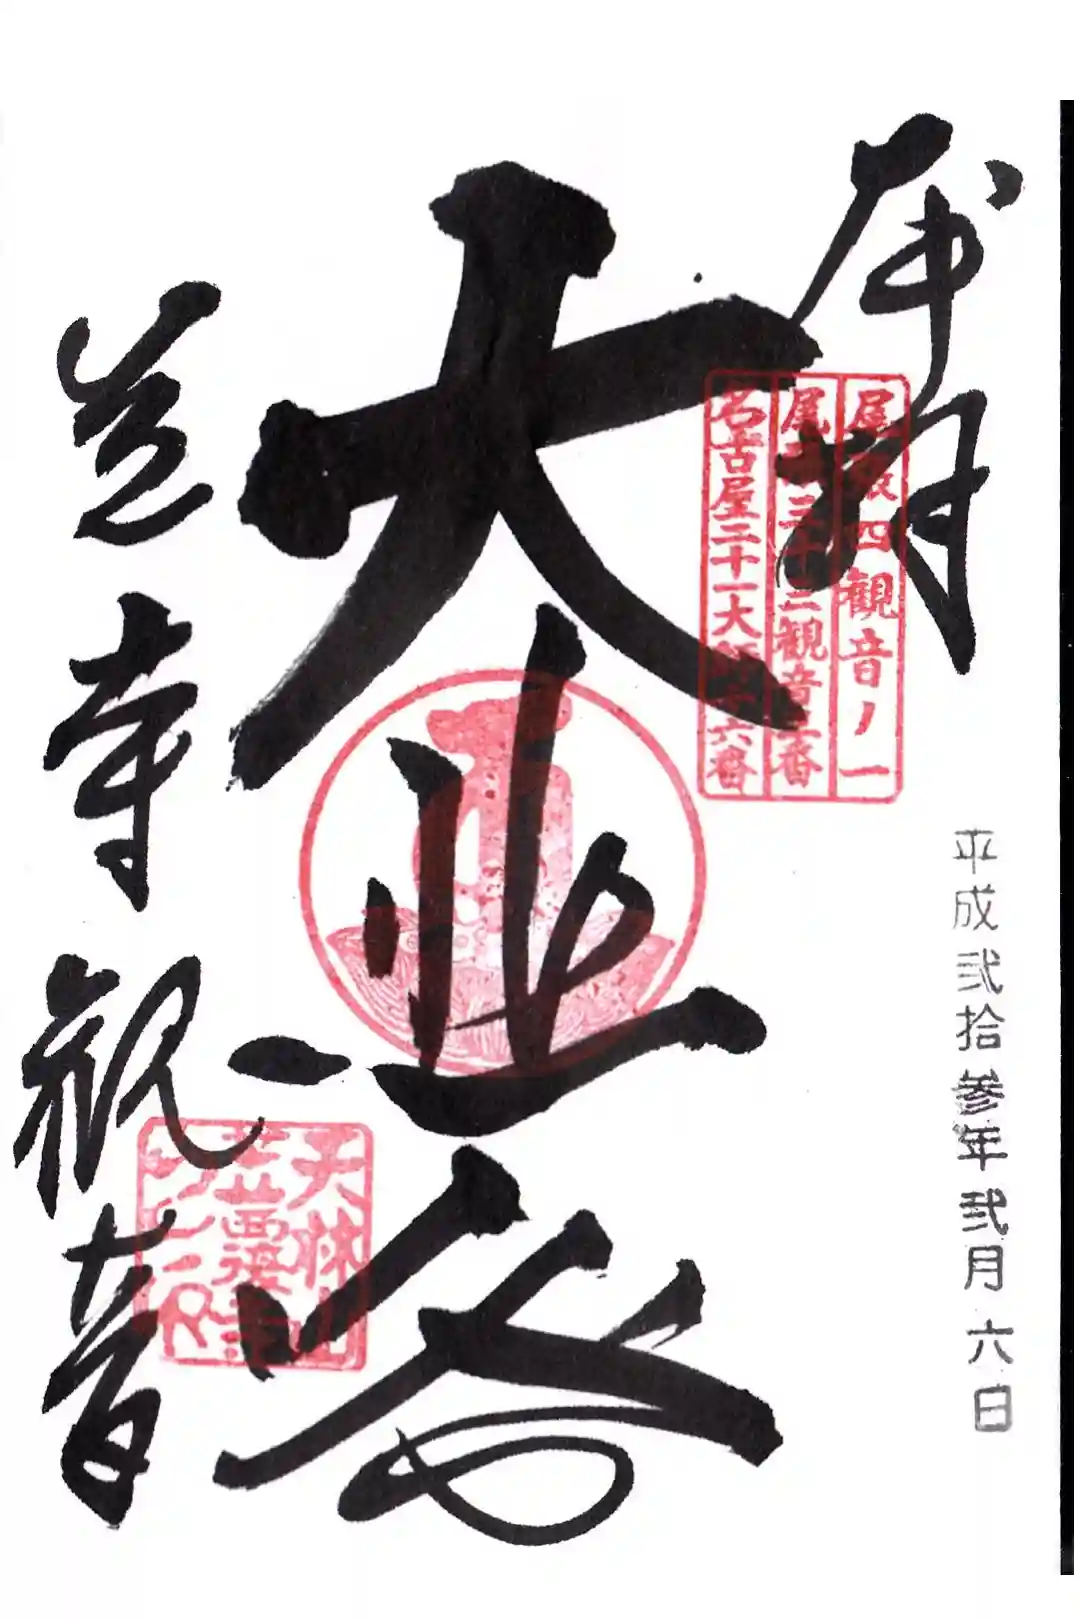 奉拝
尾張四観音ノ一
尾張三十三観音一番
名古屋二十一大師十六番
平成弐拾参年弐月六日
大悲殿
笠寺観音
天林山
笠覆寺